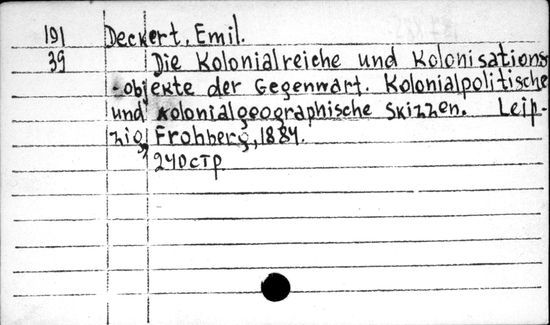 191 Deckert, Emil.
39 Die Kolonialreiche und Kolonisations
-objekte der Gegenwart. Kolonialpolitische
und kolonialgeographische Skizzen. Leip-
zig, Frohberg, 1884.
240 стр